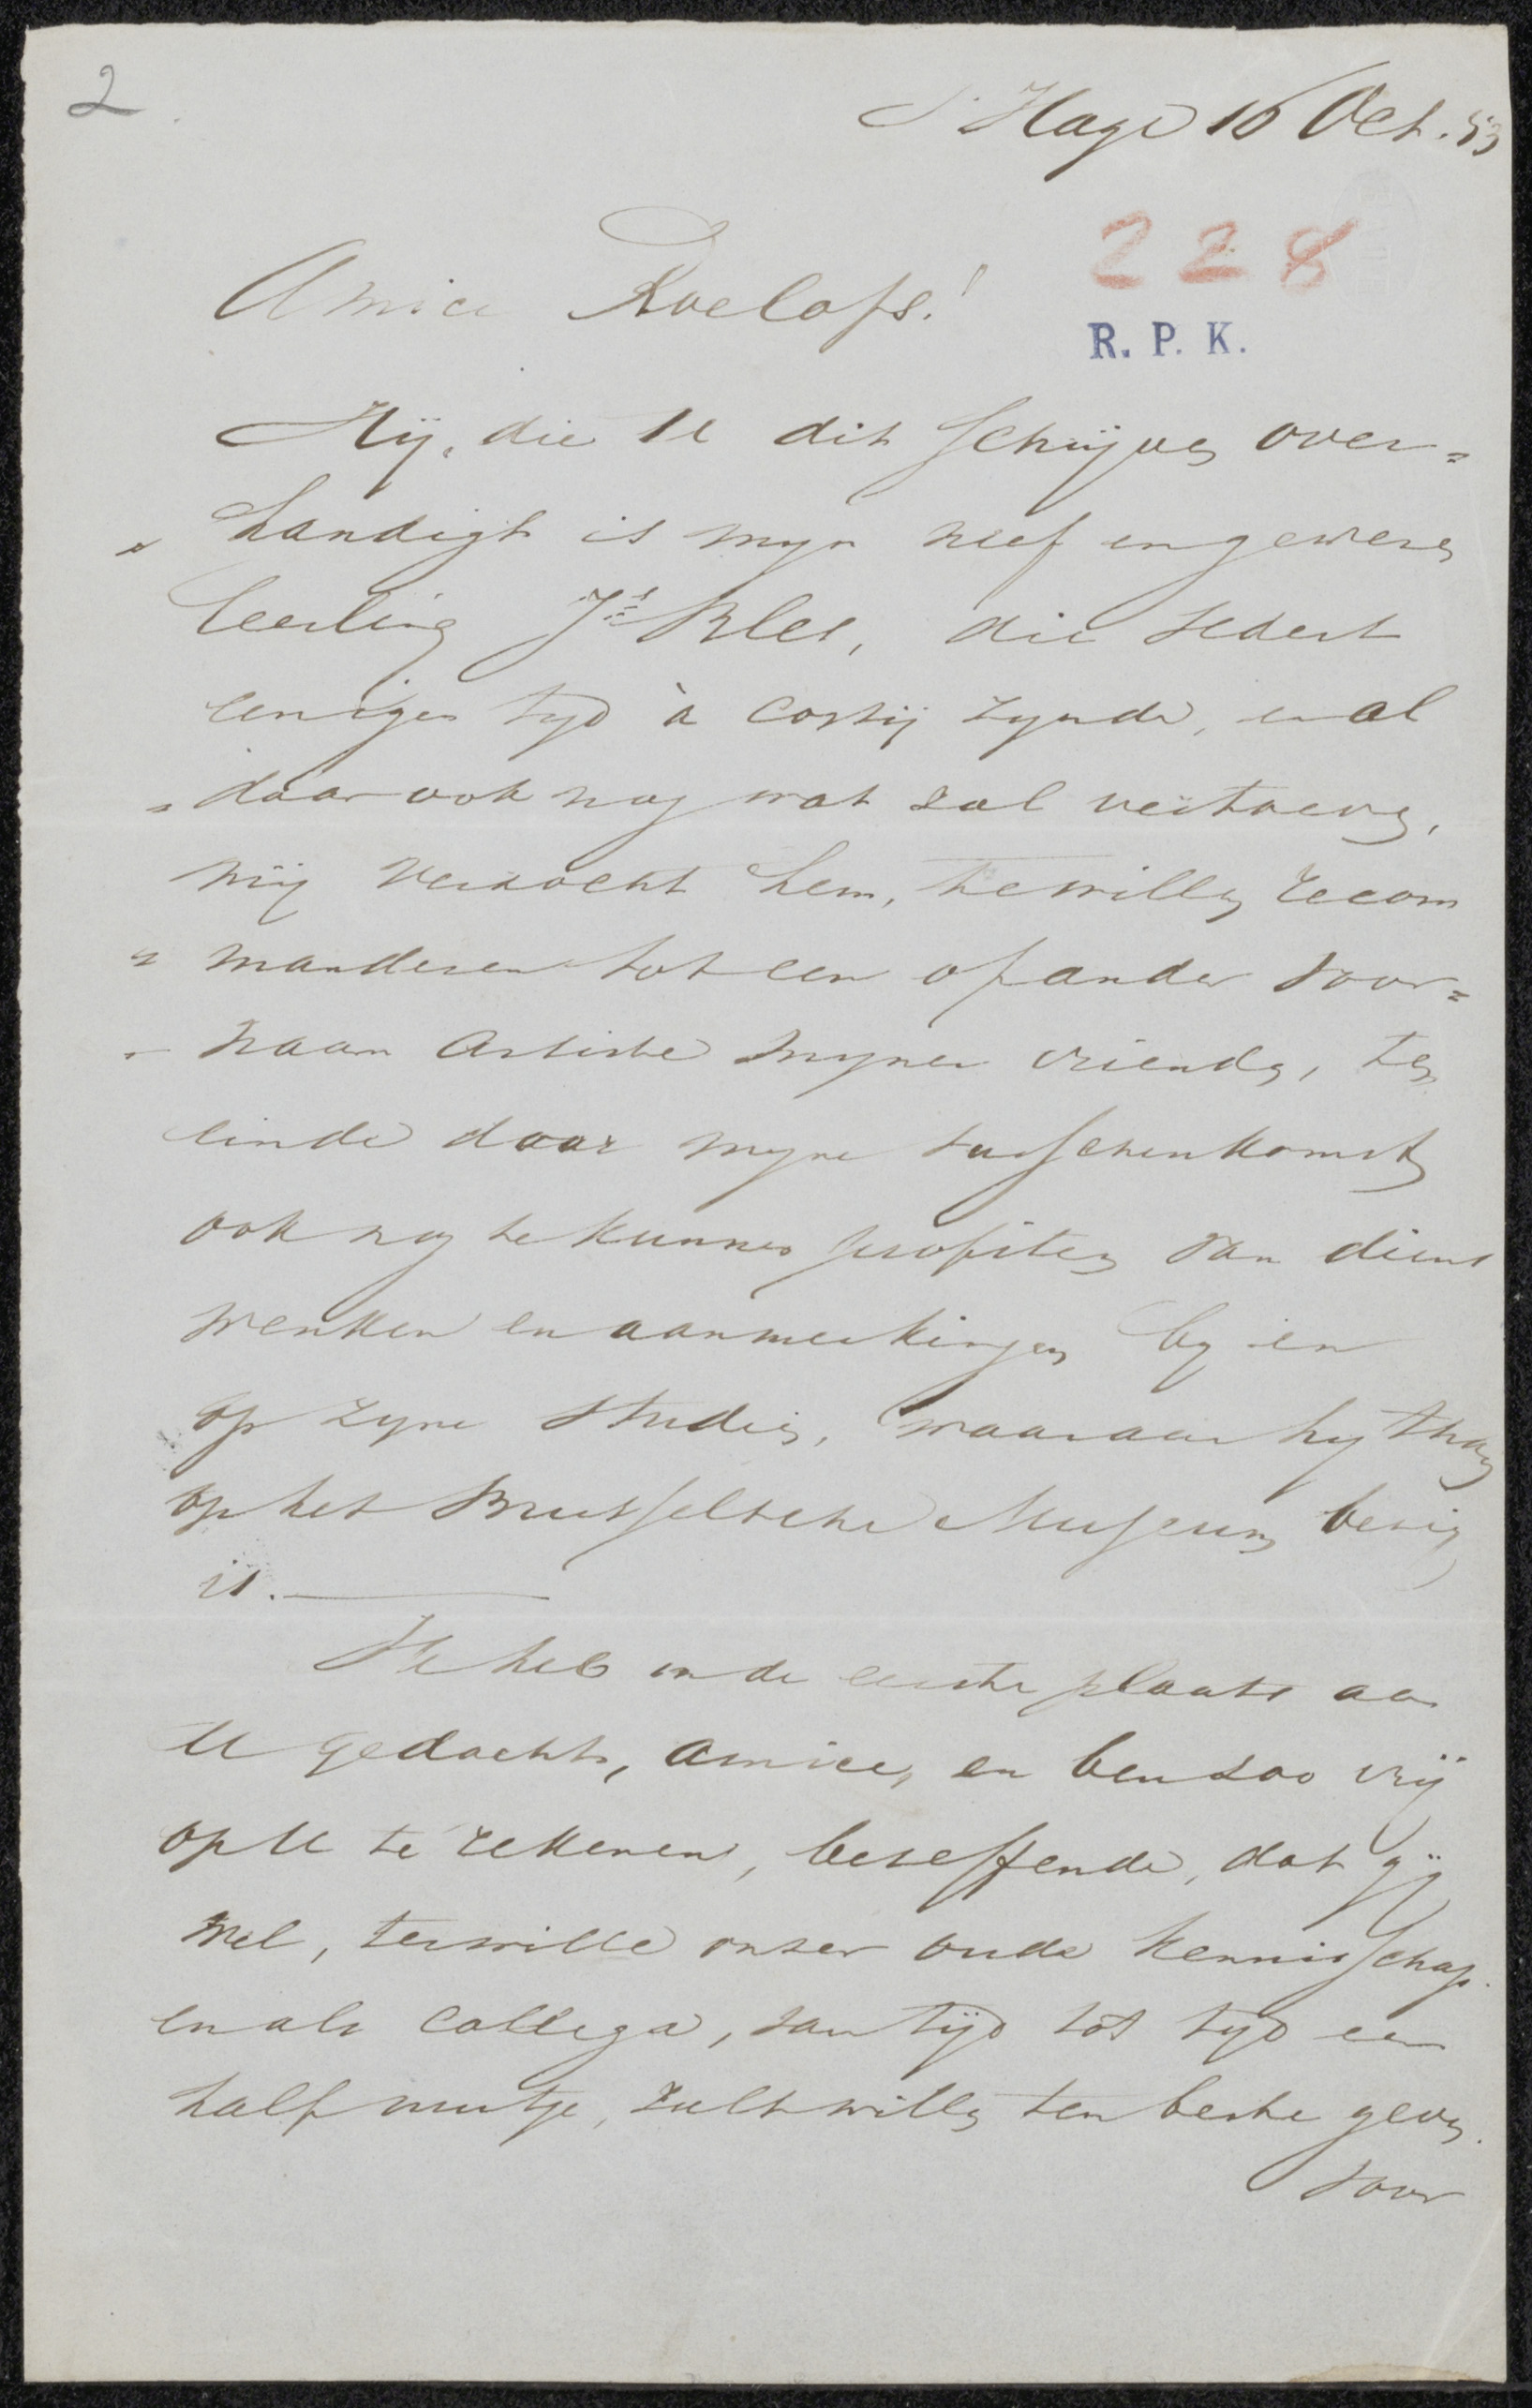 2
s' Hage 16 Oct. 53
228
Amice Roelofs!
R. P. K.
Hij, die U dit schrijven over=
=handigt is myn neef en gewezen
leerling Js. Bles, die sedert
eenigen tyd à costij zynde, en al
=daar ook nog wat zal vertoeven,
mij verzocht hem, te willen recom
=manderen tot een of ander voor=
=naam artiste myner vrienden, ten
einde door myne tusschenkomst
ook nog te kunnen profiteren van diens
wenken en aanmerkingen by en
op zyne studien, waaraan hy thans
op het Brusselsche Museum bezig
is.
Ik heb in de eerste plaats aan
U gedacht, amice, en ben zoo vrij
op U te rekenen, beseffende, dat gij
wel, terwille onser oude kennisschap
en als collega, van tijd tot tyd een
half uurtje, zult willen ten beste geven.
voor